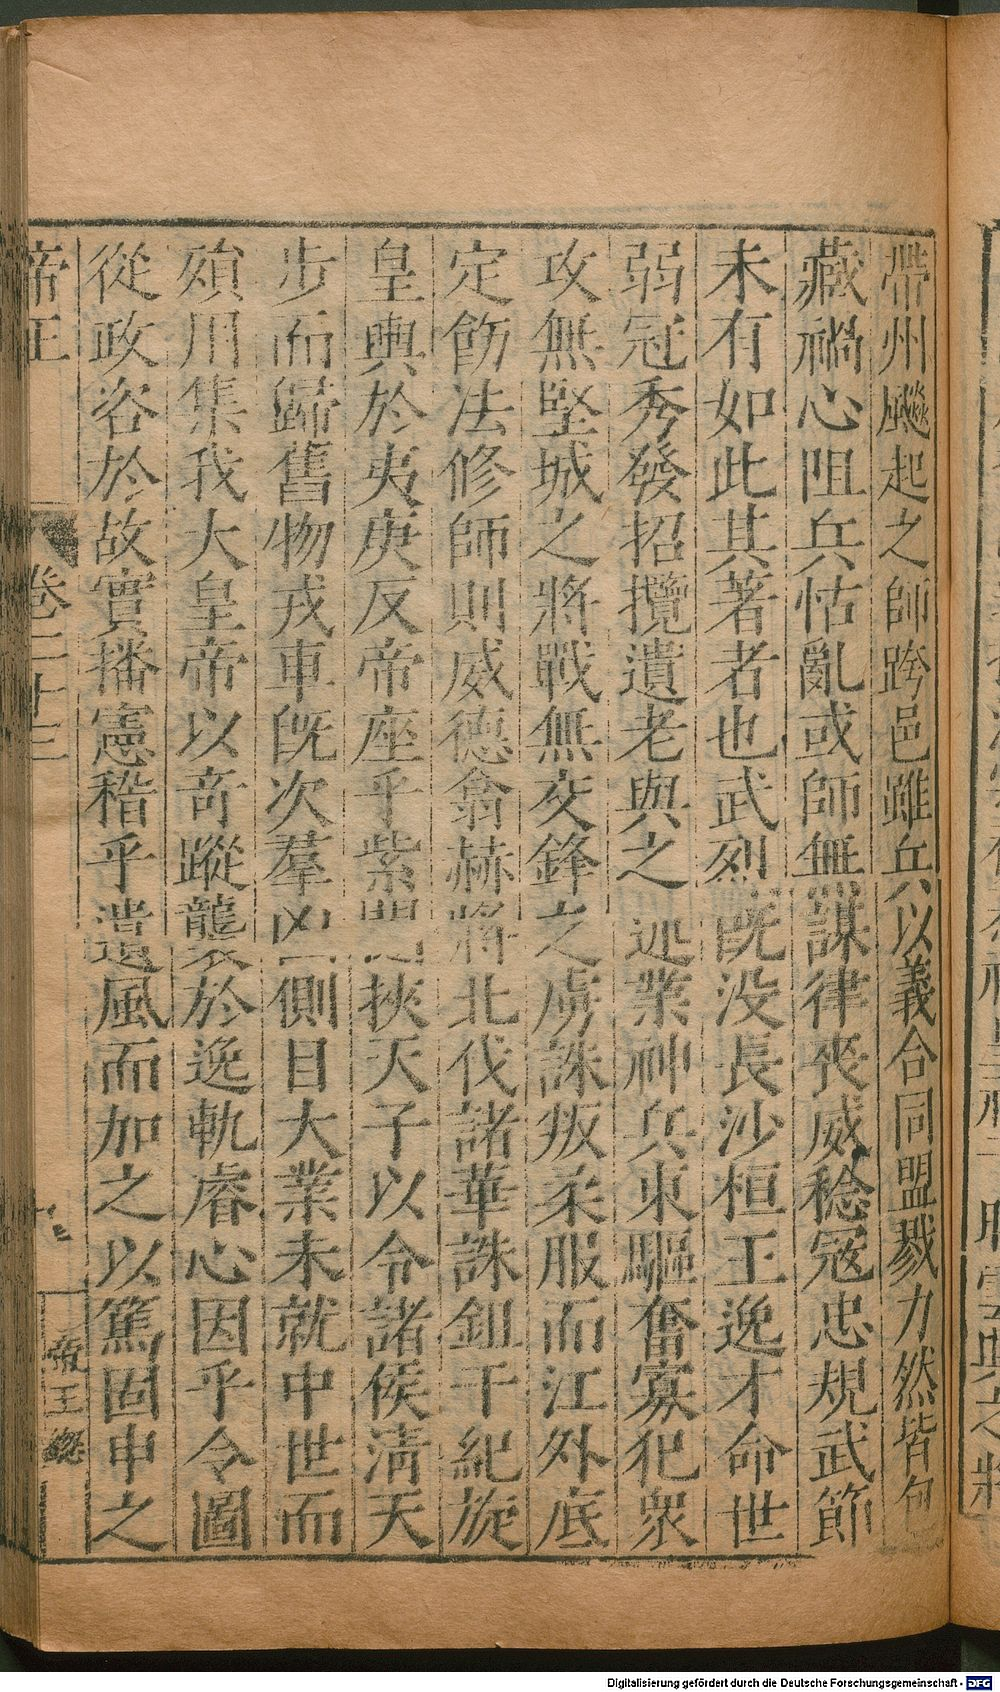 帶州飈起之師跨邑雖兵以義合同盟戮力然皆包
藏禍心阻兵怙亂或師無謀律喪威稔寇忠規武節
未有如此其著者也武烈既没長沙桓王逸才命世
弱冠秀發招攬遺老與之述業神兵東驅奮寡犯衆
攻無堅城之將戰無交鋒之虜誅叛柔服而江外底
定飭法修師則威德翕赫將北伐諸華誅鉏干紀旋
皇輿於夷庚反帝座乎紫闥挾天子以令諸侯淸天
步而歸舊物戎車旣次羣凶側目大業未就中世而
殞用集我大皇帝以奇蹤襲於逸軌睿心因乎令圖
從政咨於故實播憲稽乎遺風而加之以篤固申之
帝王 卷二十三 帝王總
Digitalisierung gefördert durch die Deutsche Forschungsgemeinschaft - DFG